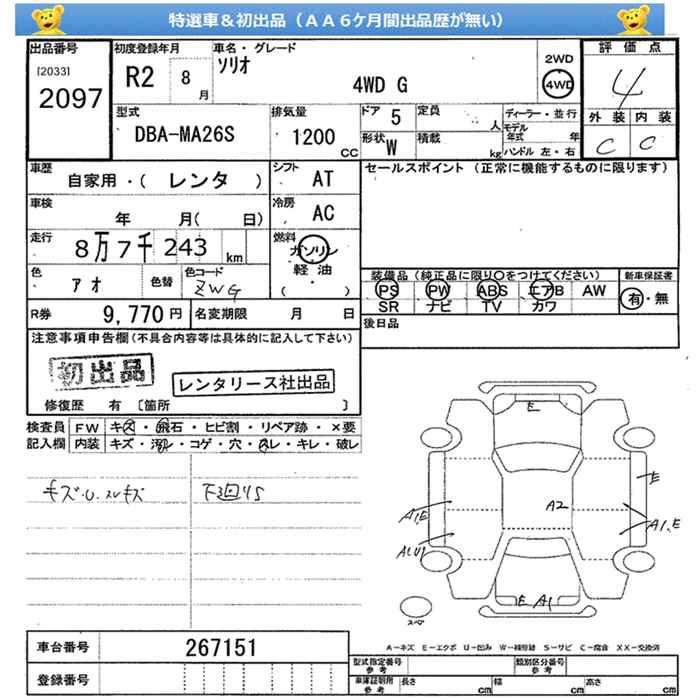 特選車＆初出品（ＡＡ６ケ月間出品歴が無い）
出品番号 初度登録年月 車名・グレード 評価点
[2033] R2 8月 ソリオ 2WD
2097 4WD G 4WD 4
型式 排気量 ドア 定員 ディーラー・並行 外装 内装
DBA-MA26S 1200 CC 5 人 モデル年式 年 C C
形状 W 積載 kg ハンドル 左・右
車歴 シフト セールスポイント（正常に機能するものに限ります）
自家用・（レンタ） AT
車検 冷房
年 月（ 日） AC
走行 燃料
8万7千243 km ガソリン
軽油
（・）
色 色替 色コード 装備品（純正品に限り○をつけてください） 新車保証書
アオ ZWG PS PW ABS エアB AW 有・無
SR ナビ TV カワ
R券 9,770円 名変期限 月 日 後日品
注意事項申告欄（不具合内容等は具体的に記入して下さい）
初出品 レンタリース社出品
修復歴 有 〔箇所 〕
検査員 FW キズ・飛石・ヒビ割・リペア跡・×要
記入欄 内装 キズ・汚レ・コゲ・穴・スレ・キレ・破レ
キズ・U.スレキズ 下廻りS
E
E
A1E A2 A1.E
A1U1
E A1
スペア
A－キズ E－エクボ U－凹み W－補修跡 S－サビ C－腐食 XX－交換済
車台番号 267151
型式指定番号 参考 類別区分番号 参考
登録番号 車庫証明用 参考 長さ cm 幅 cm 高さ cm